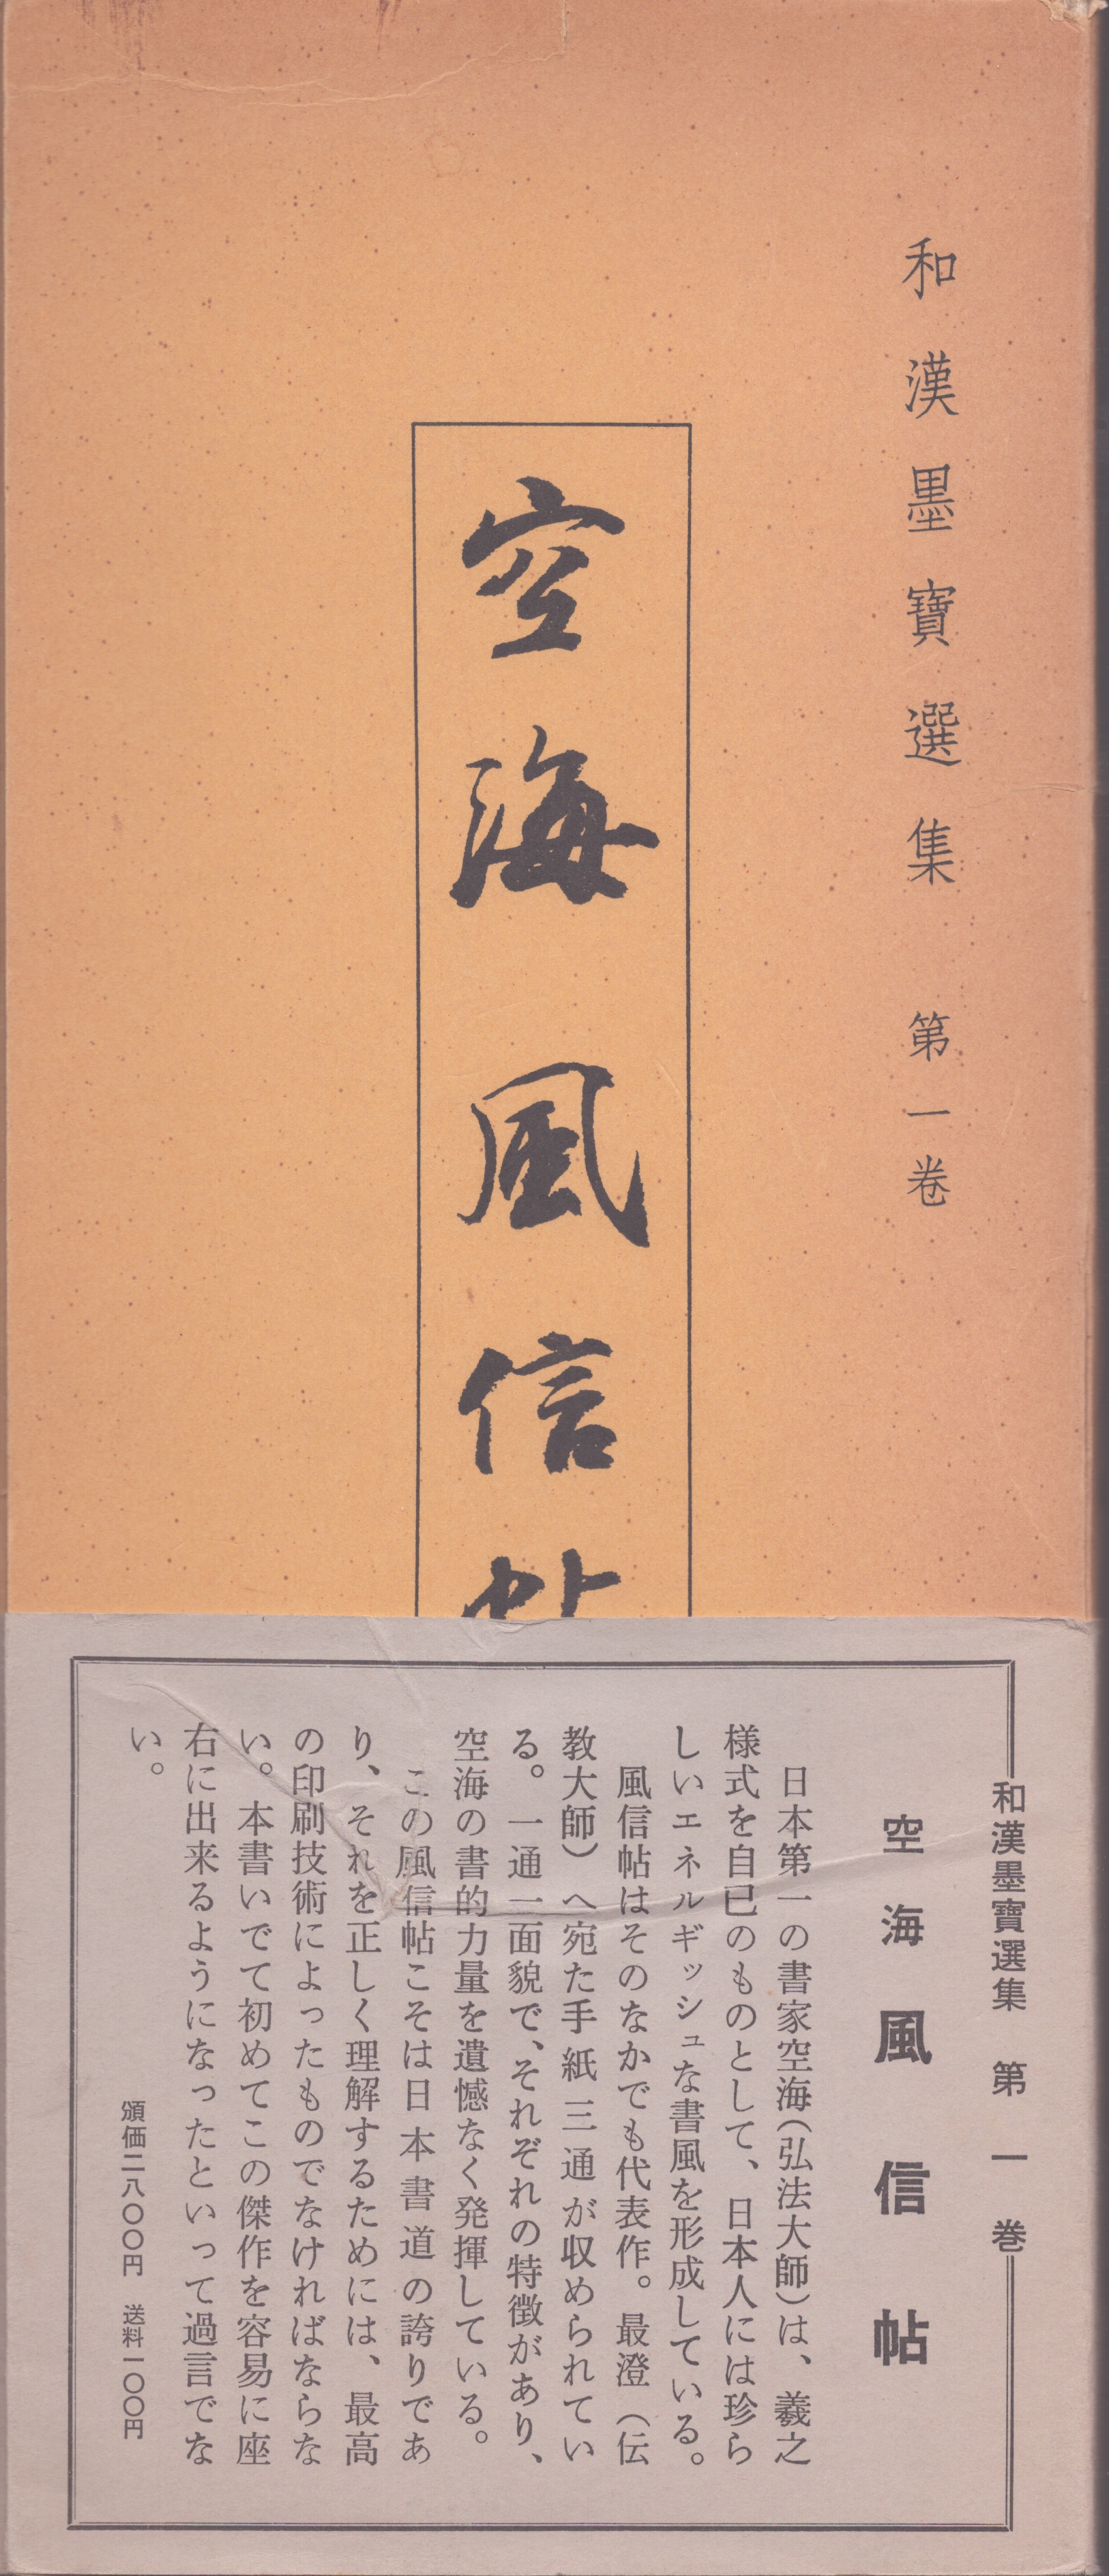 和漢墨寶選集 第一卷
空海 風信帖
和漢墨寶選集 第一巻
空海 風信帖
日本第一の書家空海（弘法大師）は、羲之
様式を自己のものとして、日本人には珍ら
しいエネルギッシュな書風を形成している。
風信帖はそのなかでも代表作。最澄（伝
教大師）へ宛た手紙三通が収められてい
る。一通一面貌で、それぞれの特徴があり、
空海の書的力量を遺憾なく発揮している。
この風信帖こそは日本書道の誇りであ
り、それを正しく理解するためには、最高
の印刷技術によったものでなければならな
い。本書いでて初めてこの傑作を容易に座
右に出来るようになったといって過言でな
い。
頒価二八〇〇円 送料一〇〇円